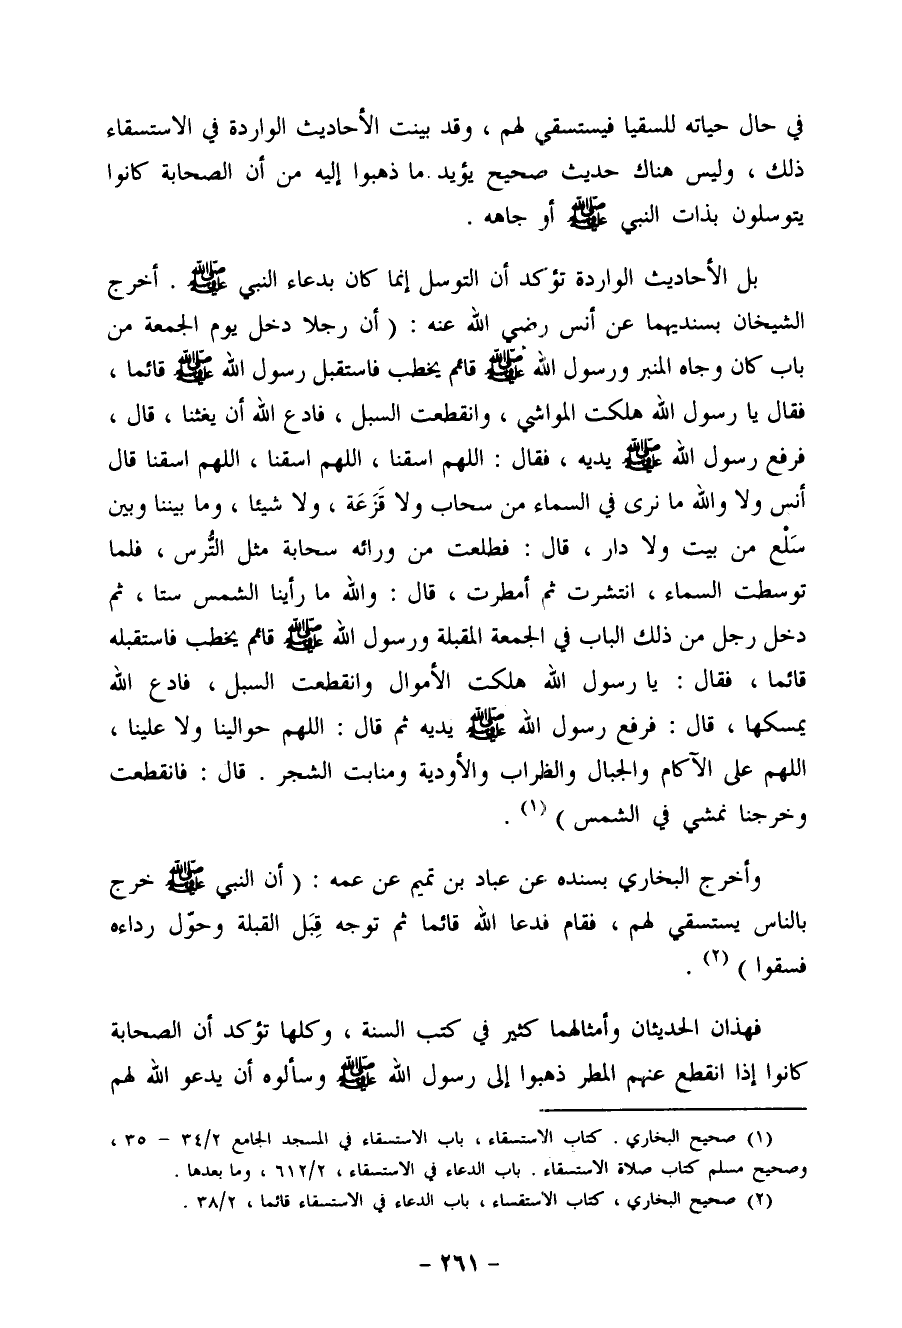 في حال حياته للسقيا فيستسقي لهم ، وقد بينت الأحاديث الواردة في الاستسقاء
ذلك ، وليس هناك حديث صحيح يؤيد ما ذهبوا إليه من أن الصحابة كانوا
يتوسلون بذات النبي ﷺ أو جاهه .
بل الأحاديث الواردة تؤكد أن التوسل إنما كان بدعاء النبي ﷺ . أخرج
الشيخان بسنديهما عن أنس رضي الله عنه : ( أن رجلا دخل يوم الجمعة من
باب كان وجاه المنبر ورسول الله ﷺ قائم يخطب فاستقبل رسول الله ﷺ قائما ،
فقال يا رسول الله هلكت المواشي ، وانقطعت السبل ، فادع الله أن يغثنا ، قال ،
فرفع رسول الله ﷺ يديه ، فقال : اللهم اسقنا ، اللهم اسقنا ، اللهم اسقنا قال
أنس ولا والله ما نرى في السماء من سحاب ولا قَزَعَة ، ولا شيئا ، وما بيننا وبين
سَلْع من بيت ولا دار ، قال : فطلعت من ورائه سحابة مثل التُّرس ، فلما
توسطت السماء ، انتشرت ثم أمطرت ، قال : والله ما رأينا الشمس ستا ، ثم
دخل رجل من ذلك الباب في الجمعة المقبلة ورسول الله ﷺ قائم يخطب فاستقبله
قائما ، فقال : يا رسول الله هلكت الأموال وانقطعت السبل ، فادع الله
يمسكها ، قال : فرفع رسول الله ﷺ يديه ثم قال : اللهم حوالينا ولا علينا ،
اللهم على الآكام والجبال والظراب والأودية ومنابت الشجر . قال : فانقطعت
وخرجنا نمشي في الشمس ) (١) .
وأخرج البخاري بسنده عن عباد بن تميم عن عمه : ( أن النبي ﷺ خرج
بالناس يستسقي لهم ، فقام فدعا الله قائما ثم توجه قِبَل القبلة وحوّل رداءه
فسقوا ) (٢) .
فهذان الحديثان وأمثالهما كثير في كتب السنة ، وكلها تؤكد أن الصحابة
كانوا إذا انقطع عنهم المطر ذهبوا إلى رسول الله ﷺ وسألوه أن يدعو الله لهم
(١) صحيح البخاري . كتاب الاستسقاء ، باب الاستسقاء في المسجد الجامع ٣٤/٢ - ٣٥ ،
وصحيح مسلم كتاب صلاة الاستسقاء . باب الدعاء في الاستسقاء ، ٦١٢/٢ ، وما بعدها .
(٢) صحيح البخاري ، كتاب الاستقساء ، باب الدعاء في الاستسقاء قائما ، ٣٨/٢ .
- ٢٦١ -